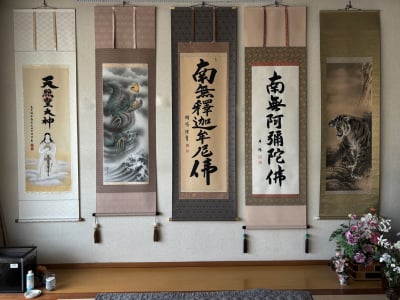 天照皇大神
南無釋迦牟尼佛
南無阿彌陀佛